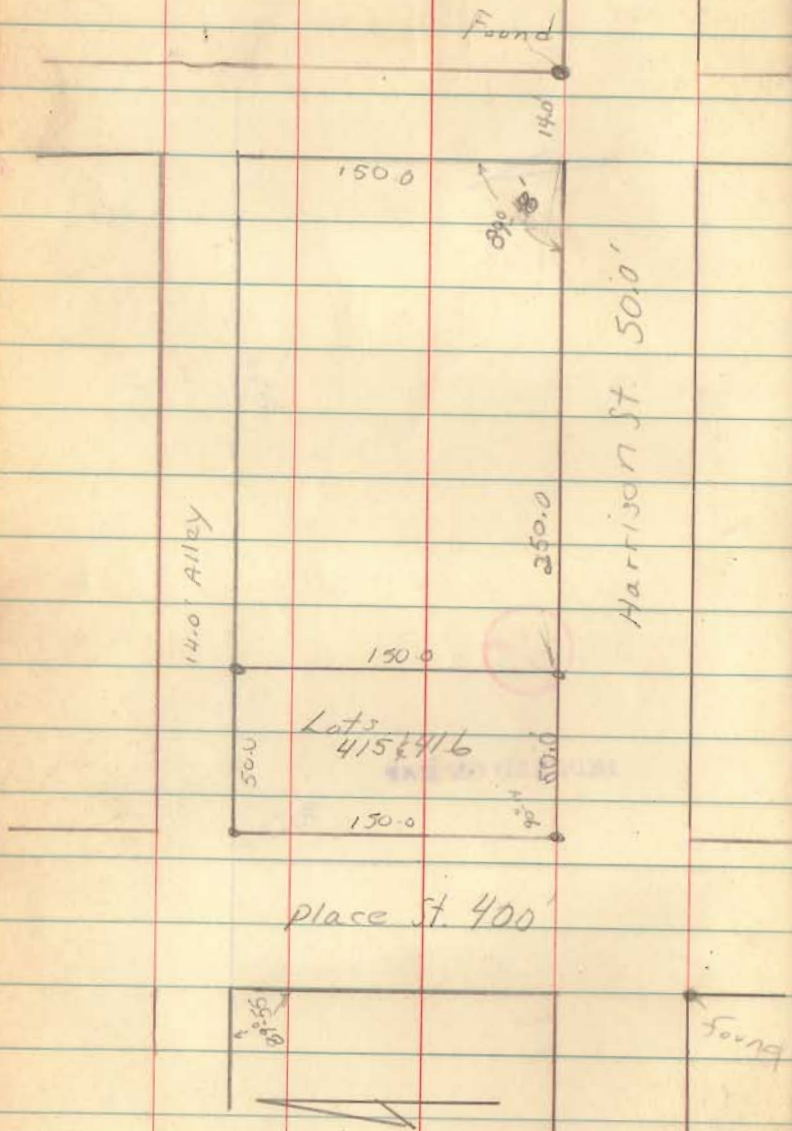 Found
14.0'
150.0
Harrison St. 50.0'
250.0
14.0' Alley
150.0
Lots
415 & 416
50.0
50.0'
150.0
place St. 400'
89°-55'
Found